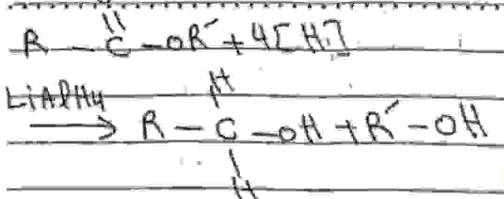 R - C - OR′ + 4[H]
H
LiAlH4 → R - C - OH + R′ - OH
H